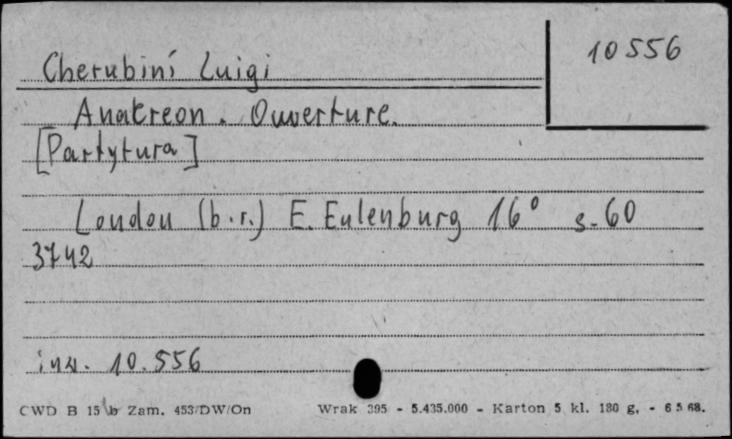 10556
Cherubini Luigi
Anakreon. Ouverture.
[Partytura]
London (b.r.) E. Eulenburg 16° s. 60
3742
inw. 10.556
CWD B 15 b Zam. 453/DW/On Wrak 395 - 5.435.000 - Karton 5 kl. 180 g. - 6 5 68.